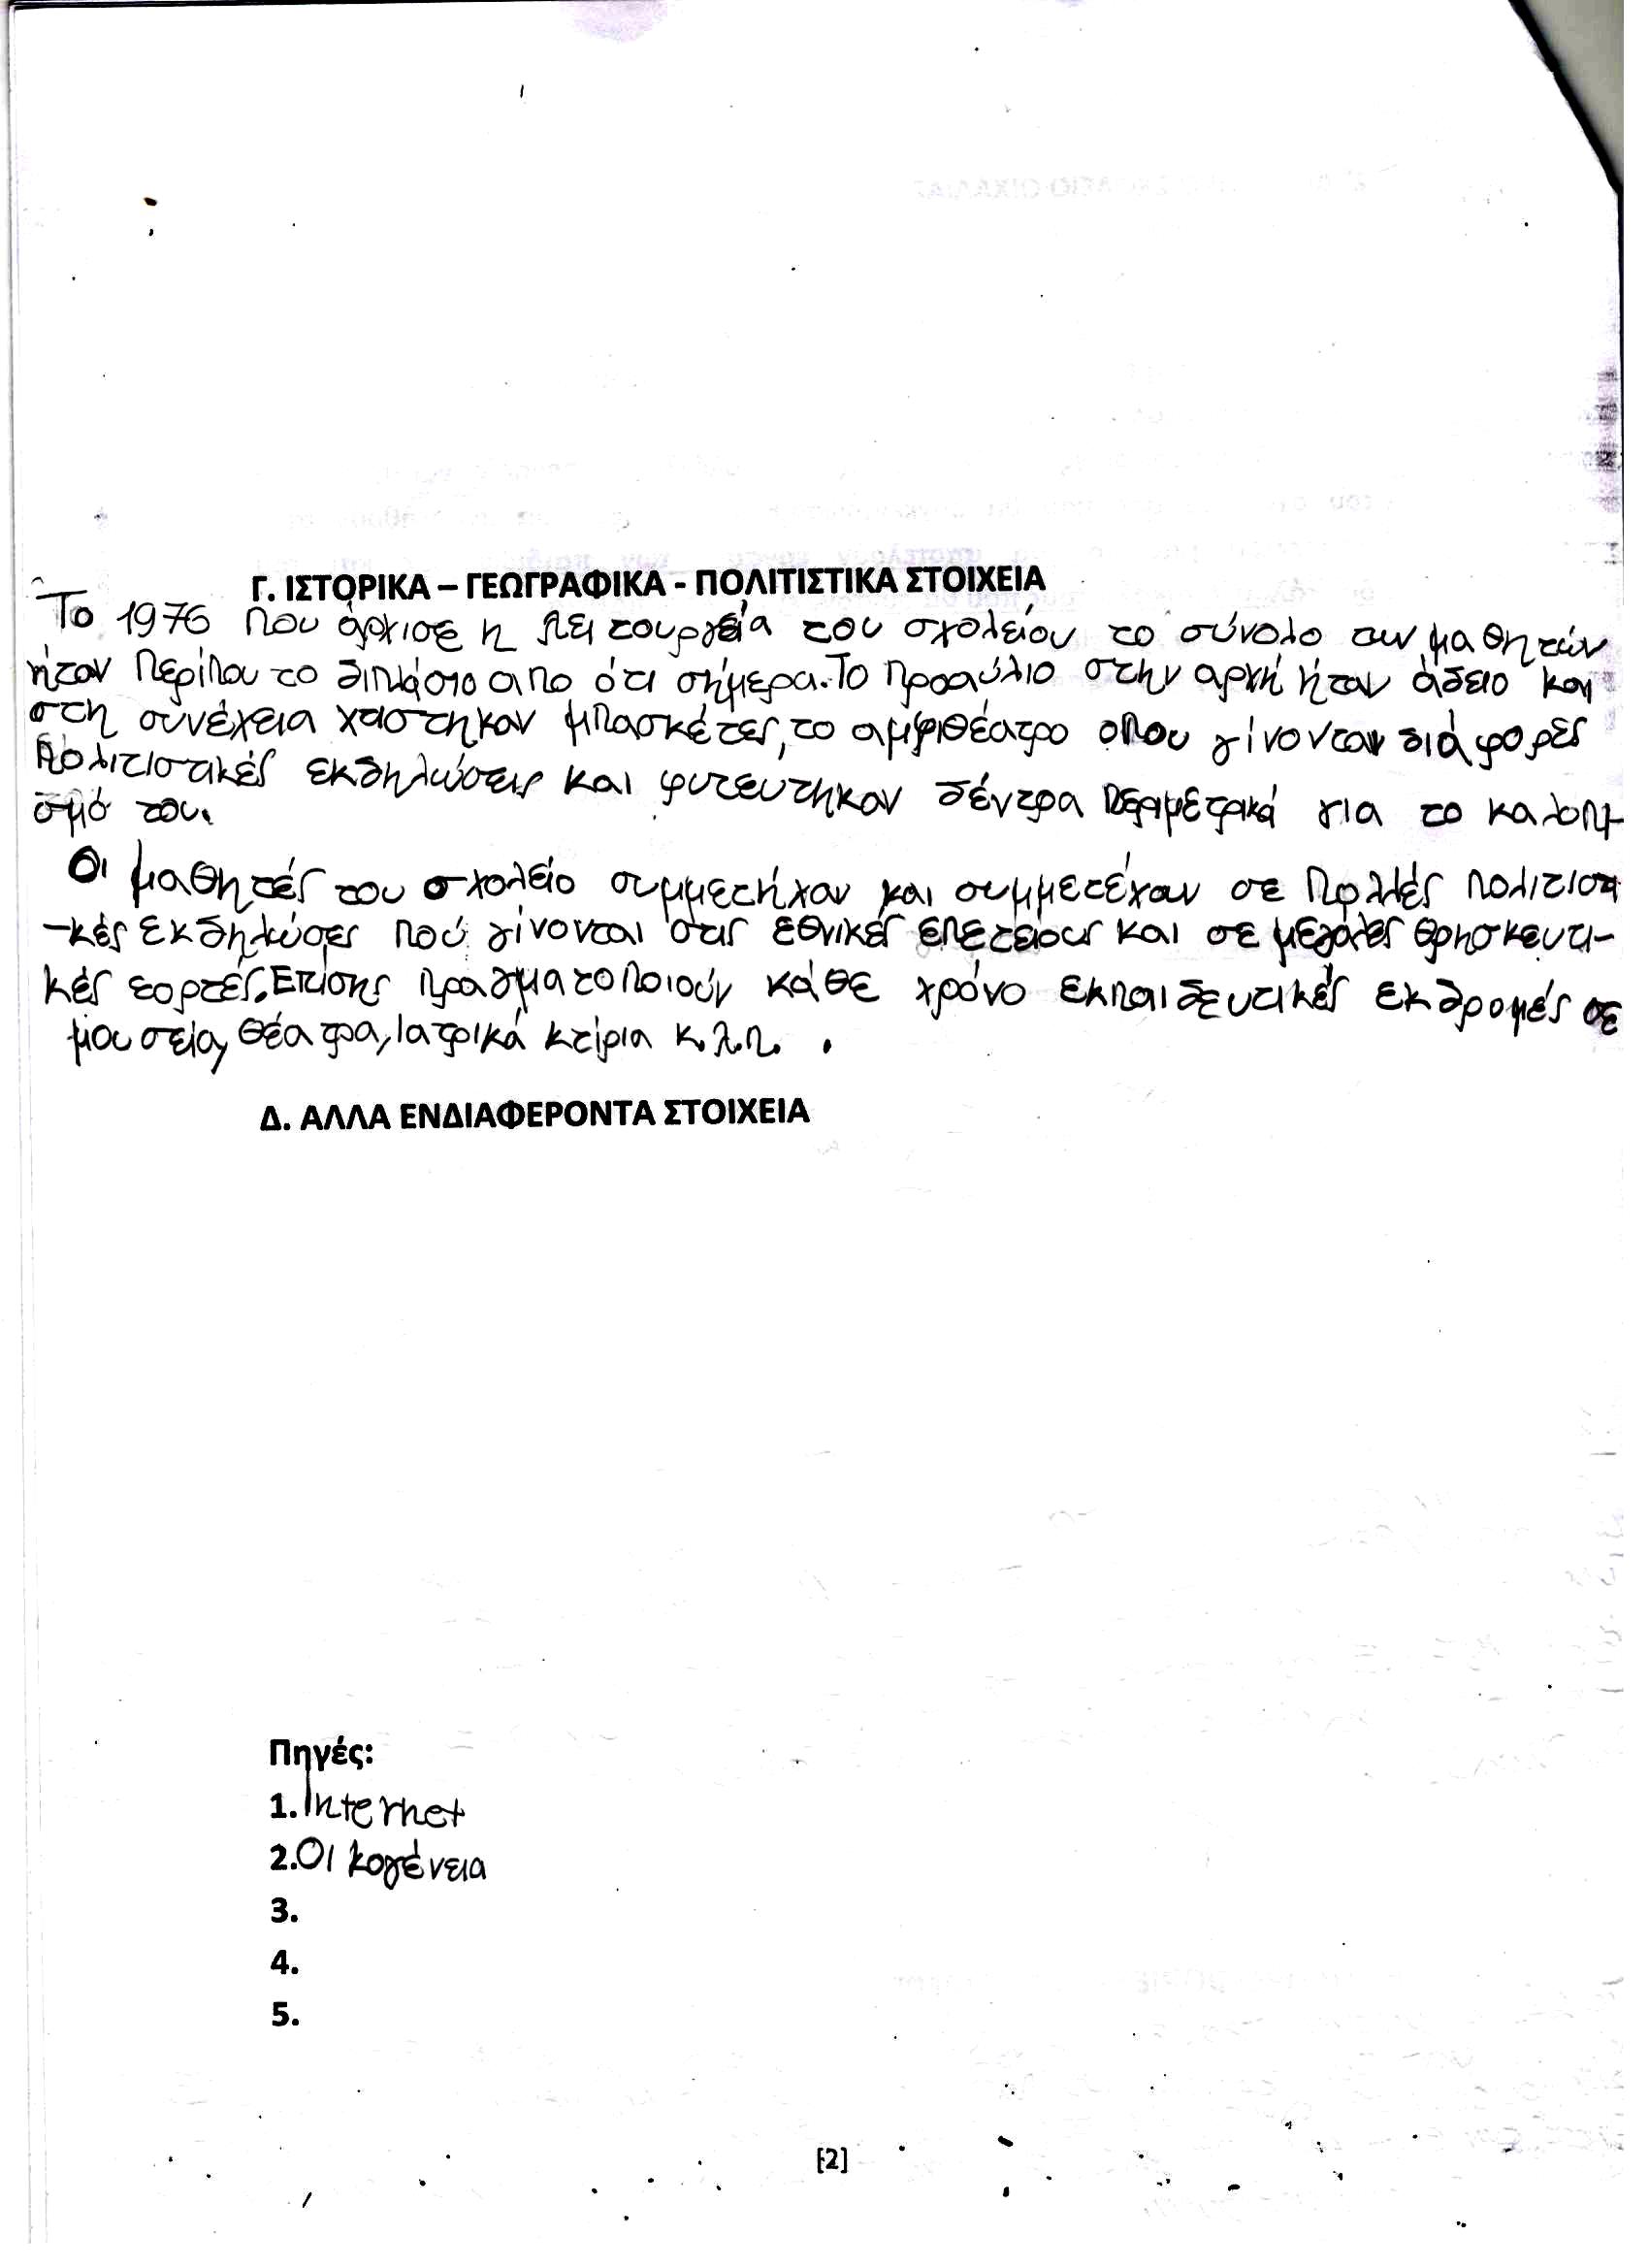 Γ. ΙΣΤΟΡΙΚΑ – ΓΕΩΓΡΑΦΙΚΑ - ΠΟΛΙΤΙΣΤΙΚΑ ΣΤΟΙΧΕΙΑ
Το 1976 που άρχισε η λειτουργεία του σχολείου το σύνολο των μαθητών
ήταν περίπου το διπλάσιο απο ότι σήμερα. Το προαύλιο στην αρχή ήταν άδειο και
στη συνέχεια χτιστηκαν μπασκέτες, το αμφιθέατρο οπου γίνονταν διάφορες
πολιτιστικές εκδηλώσεις και φυτευτηκαν δέντρα περιμετρικά για το καλοπι-
σμό του.
Οι μαθητές του σχολείο συμμετήχαν και συμμετέχαν σε πολλές πολιτιστι
-κές εκδηλώσες πού γίνονται στις εθνικές επετείους και σε μεγάλες θρησκευτι-
κές εορτές. Επίσης πραγματοποιούν κάθε χρόνο εκπαιδευτικές εκδρομές σε
μουσεία, θέατρα, Ιατρικά κτίρια κ.λ.π. .
Δ. ΑΛΛΑ ΕΝΔΙΑΦΕΡΟΝΤΑ ΣΤΟΙΧΕΙΑ
Πηγές:
1. Internet
2. Οικογένεια
3.
4.
5.
[2]